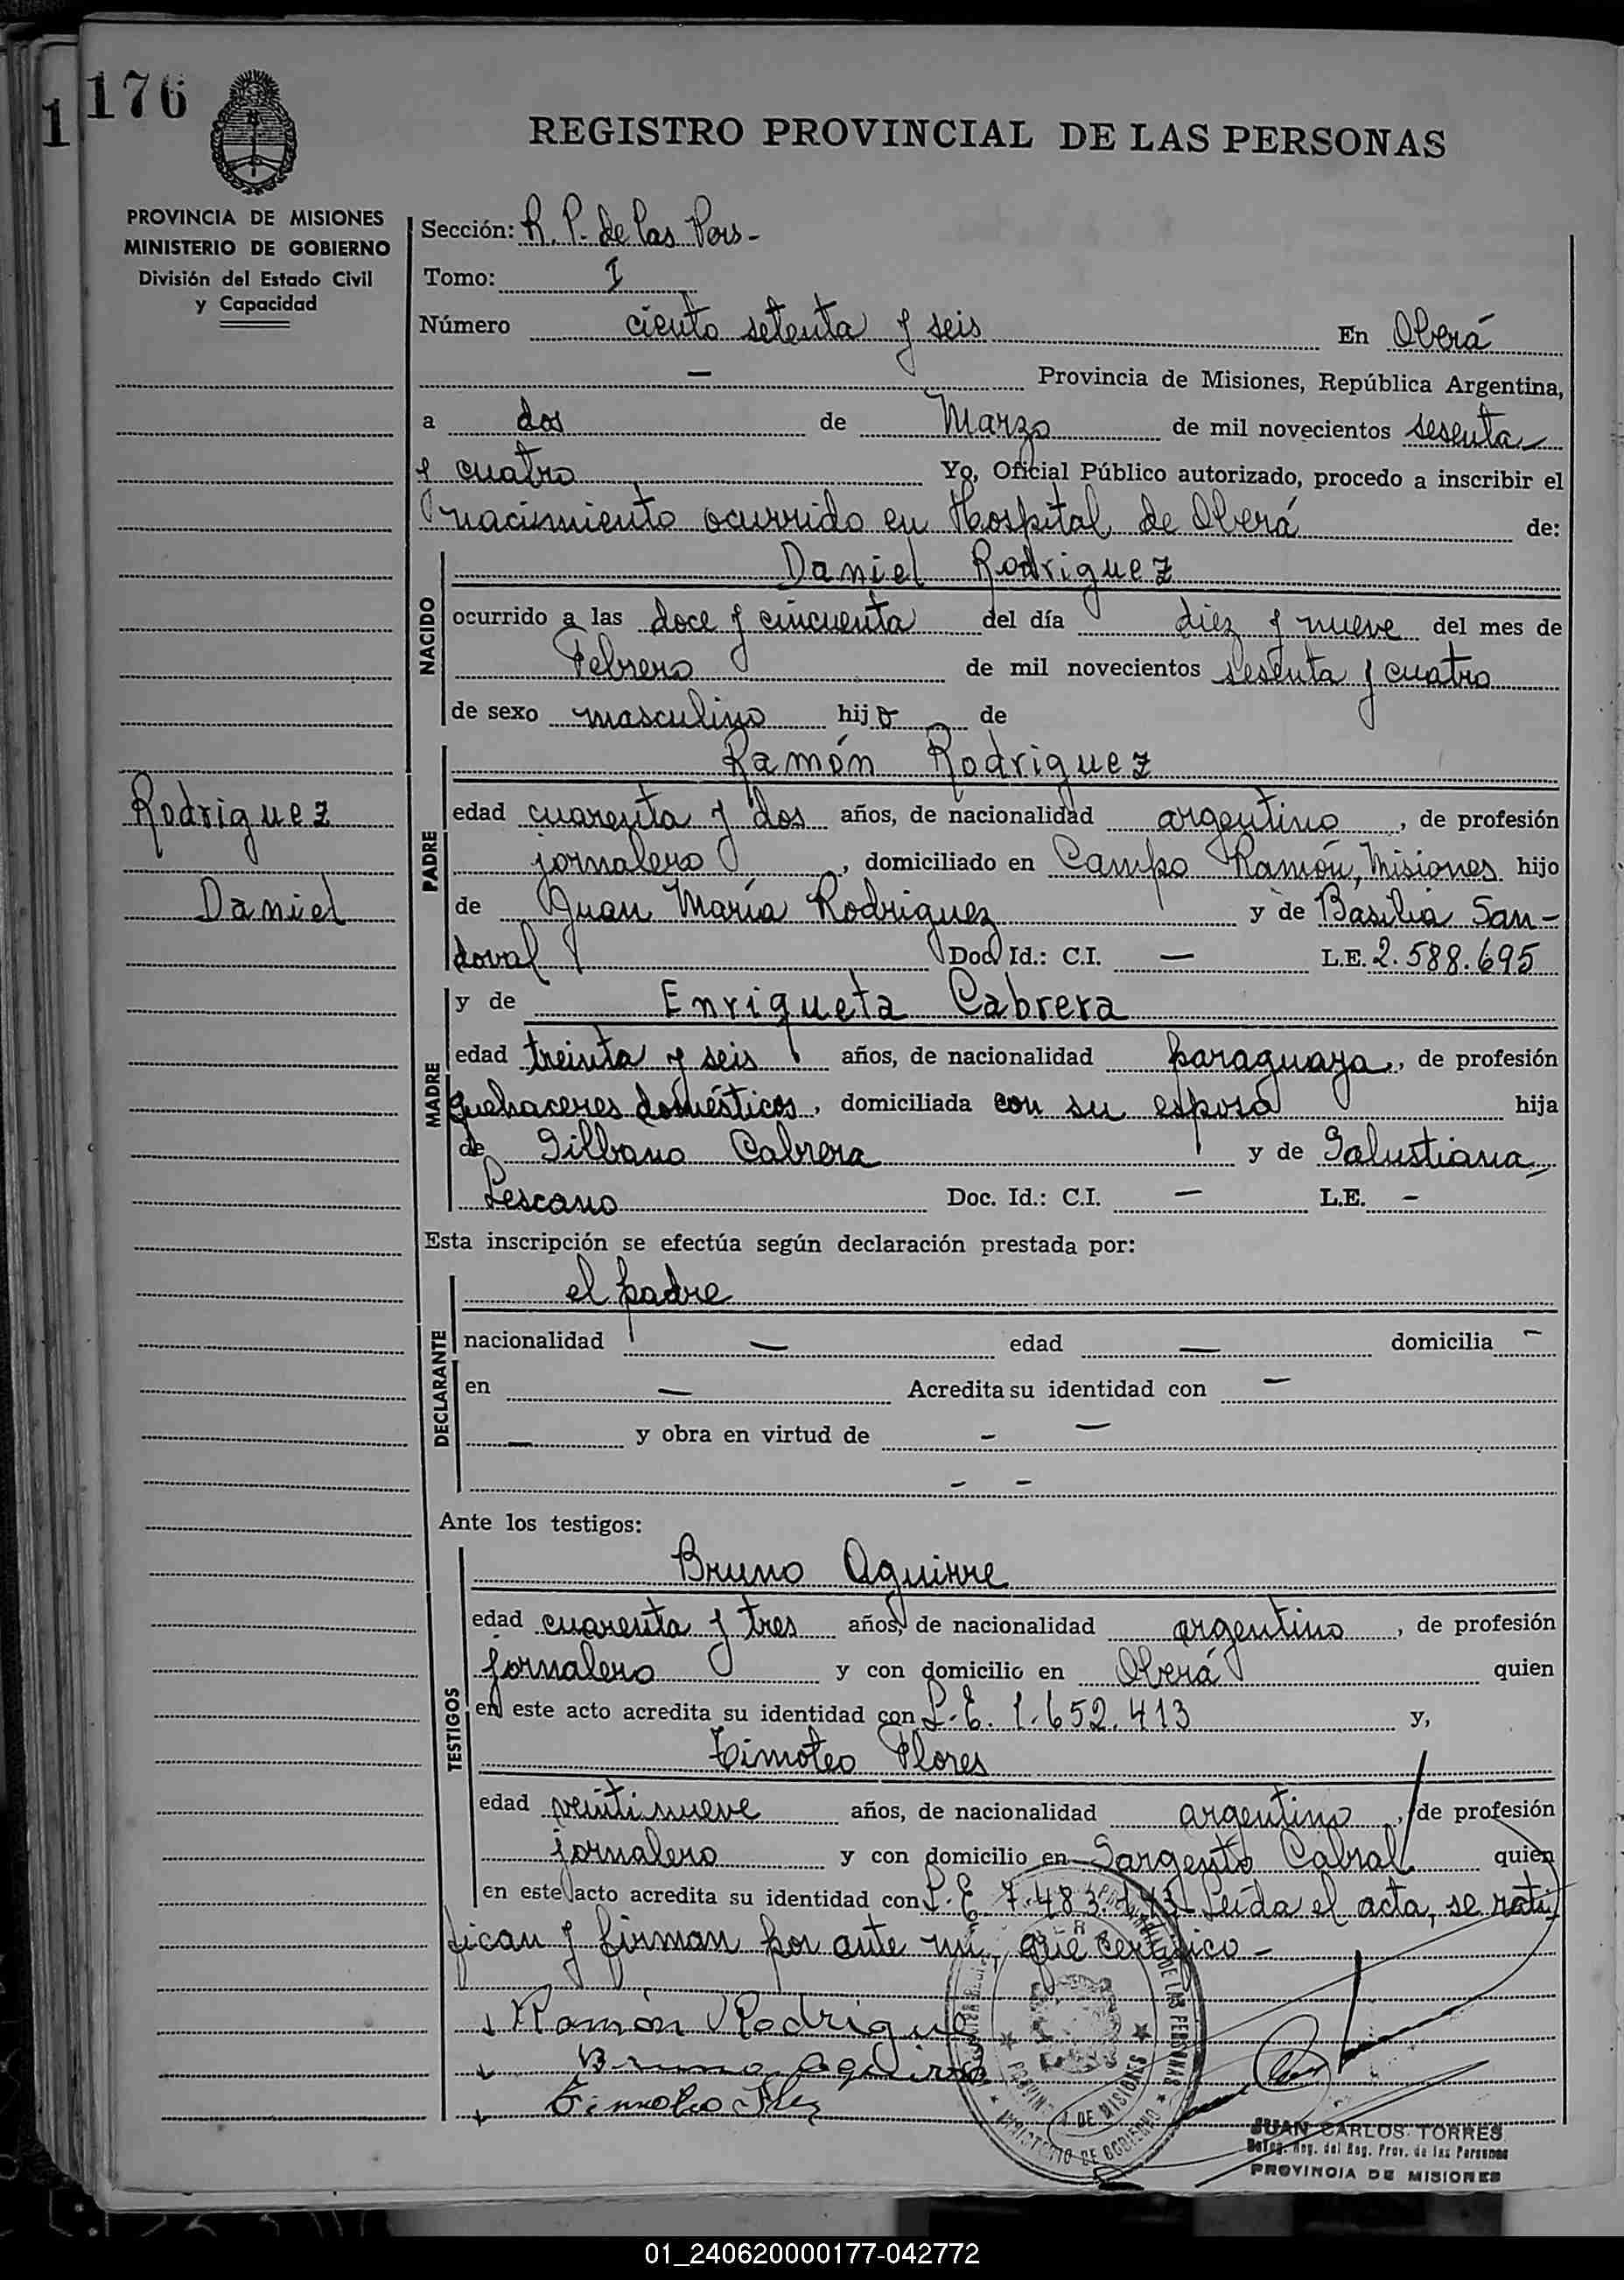 1
176
REGISTRO PROVINCIAL DE LAS PERSONAS
PROVINCIA DE MISIONES
MINISTERIO DE GOBIERNO
División del Estado Civil
y Capacidad
Sección: R. P. de las Pers-
Tomo: I
Número ciento setenta y seis En Oberá
— Provincia de Misiones, República Argentina,
a dos de Marzo de mil novecientos sesenta
y cuatro Yo, Oficial Público autorizado, procedo a inscribir el
nacimiento ocurrido en Hospital de Oberá de:
NACIDO
Daniel Rodriguez
ocurrido a las doce y cincuenta del día diez y nueve del mes de
Febrero de mil novecientos sesenta y cuatro
de sexo masculino hijo de
PADRE
Ramón Rodriguez
Rodriguez
Daniel
edad cuarenta y dos años, de nacionalidad argentino, de profesión
jornalero, domiciliado en Campo Ramón, Misiones hijo
de Juan María Rodriguez y de Basilia San-
doval Doc. Id.: C.I. — L.E. 2.588.695
MADRE
y de Enriqueta Cabrera
edad treinta y seis años, de nacionalidad paraguaya, de profesión
quehaceres domésticos, domiciliada con su esposo hija
de Silbano Cabrera y de Salustiana
Lescano Doc. Id.: C.I. — L.E. -
Esta inscripción se efectúa según declaración prestada por:
DECLARANTE
el padre
nacionalidad — edad — domicilia -
en — Acredita su identidad con -
— y obra en virtud de - —
- -
Ante los testigos:
TESTIGOS
Bruno Aguirre
edad cuarenta y tres años, de nacionalidad argentino, de profesión
jornalero y con domicilio en Oberá quien
en este acto acredita su identidad con L.E. 1.652.413 y,
Timoteo Flores
edad veintinueve años, de nacionalidad argentino, de profesión
jornalero y con domicilio en Sargento Cabral quien
en este acto acredita su identidad con L.E. 7.483. Leída el acta, se rati
fican y firman por ante mí, que certifico-
Ramón Rodrigue
Bruno Aguirre
Timoteo
PROVINCIA DE MISIONES
MINISTERIO DE GOBIERNO
JUAN CARLOS TORRES
Deleg. Reg. del Reg. Prov. de las Personas
PROVINCIA DE MISIONES
01_240620000177-042772